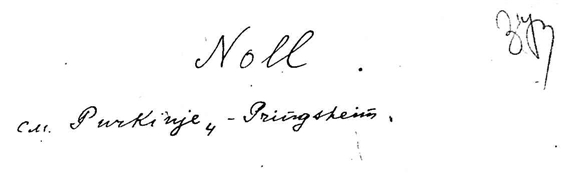 Noll.
см. Purkinje „ - Pringsheim.